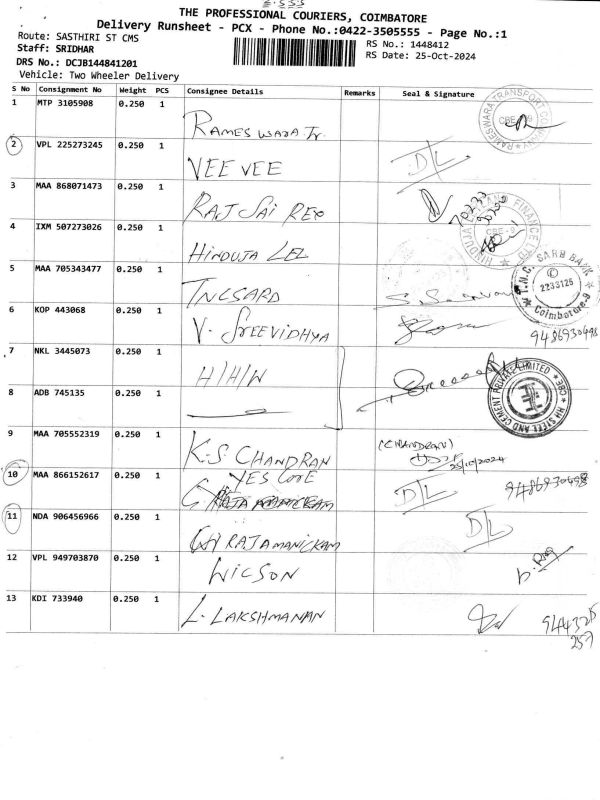 THE PROFESSIONAL COURIERS, COIMBATORE
Delivery Runsheet - PCX - Phone No.:0422-3505555 - Page No.:1
Route: SASTHIRI ST CMS
RS No.: 1448412
Staff: SRIDHAR
RS Date: 25-Oct-2024
DRS No.: DCJB144841201
Vehicle: Two Wheeler Delivery
S No Consignment No Weight PCS Consignee Details Remarks Seal & Signature
1 MTP 3105908 0.250 1 RAMESWARA Tr. RAMESWARA TRANSPORT COMPANY CBE-9
2 VPL 225273245 0.250 1 VEE VEE D/L
3 MAA 868071473 0.250 1 RAJ SAI REO
4 IXM 507273026 0.250 1 HINDUJA LEL HINDUJA FINANCE LTD CBE-9
5 MAA 705343477 0.250 1 TNCSARD T.N.C. SARB BANK 2233126 Coimbatore-9
6 KOP 443068 0.250 1 V. SREEVIDHYA 9486930498
7 NKL 3445073 0.250 1 H/H/W HH STEEL AND CEMENT PRIVATE LIMITED CBE
8 ADB 745135 0.250 1
9 MAA 705552319 0.250 1 K.S. CHANDRAN (CHANDRAN) 25/10/2024
10 MAA 866152617 0.250 1 YES CORE D/L 9486930498
11 NDA 906456966 0.250 1 RAJAMANICKAM D/L
12 VPL 949703870 0.250 1 WICSON
13 KDI 733940 0.250 1 L. LAKSHMANAN